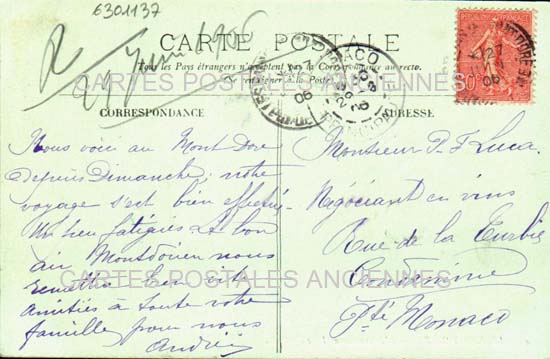 6301137
R 29 Juin 1906
CARTE POSTALE
Tous les Pays étrangers n'acceptent pas la Correspondance au recto.
se renseigner à la Poste
CORRESPONDANCE
ADRESSE
Nous voici au Mont Dore
depuis Dimanche, notre
voyage s'est bien effectué
Un peu fatigués Le bon
air Montdorien nous
remettra bien vite
Amitiés à toute votre
famille pour nous
André
Monsieur P. F. Luca
Négociant en vins
Rue de la Turbie
Condamine
Pté Monaco
MONACO
06
27
06
CARTES POSTALES ANCIENNES
CARTES POSTALES ANCIENNES